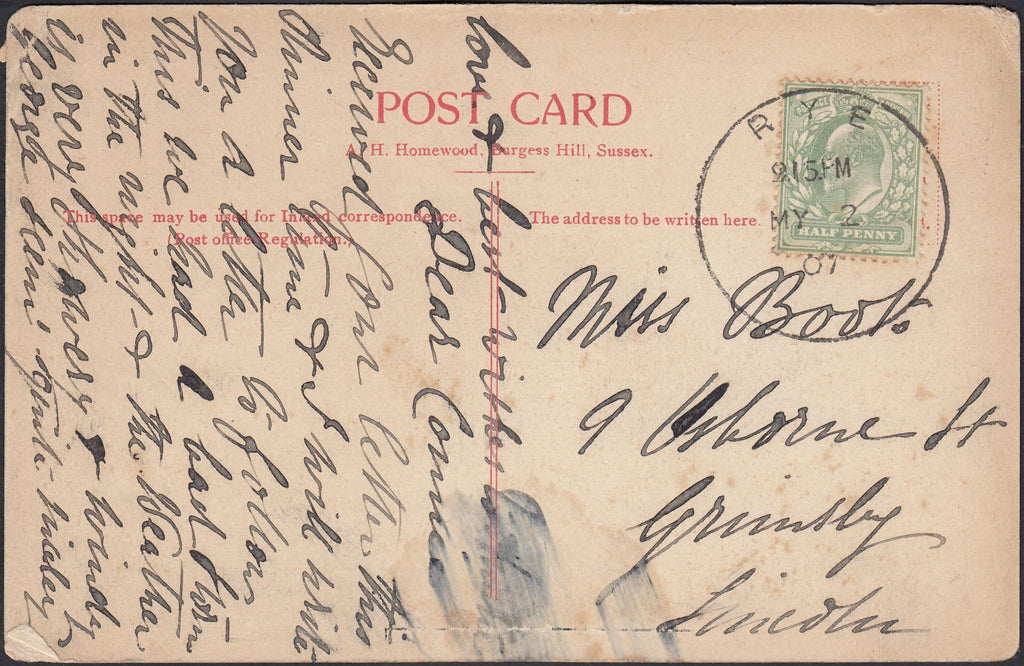 POST CARD
A. H. Homewood, Burgess Hill, Sussex.
This space may be used for Inland correspondence.
(Post office Regulation.)
The address to be written here.
RYE
9 15 PM
MY 2
07
HALF PENNY
Miss Book
9 Osborne St
Grimsby
Lincoln
Dear Connie
Received your letter this
dinner time & I will write
you a letter to follow
this we had a bad storm
in the night & the Weather
is very showery & windy
George seems quite
love & best wishes